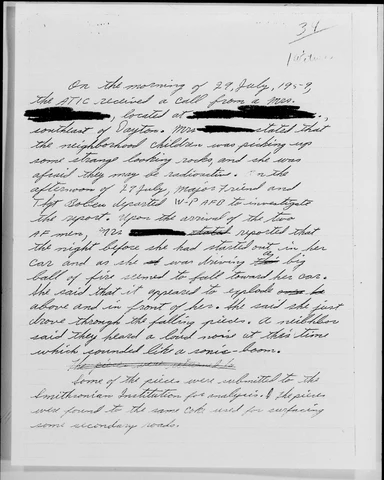 34
On the morning of 29, July, 1959,
the ATIC received a call from a Mrs.
, located at
southeast of Dayton. Mrs stated that
the neighborhood children was picking up
some strange looking rocks, and she was
afraid they may be radioactive. In the
afternoon of 29 July, Major Friend and
T/Sgt departed W-P AFB to investigate
the report. Upon the arrival of the two
AF men, Mrs stated reported that
the night before she had started out in her
car and as she was driving a big
ball of fire seemed to fall toward her car.
She said that it appeared to explode
above and in front of her. She said she just
drove through the falling pieces. A neighbor
said they heard a loud noise at this time
which sounded like a sonic-boom.
The pieces were
Some of the pieces were submitted to the
Smithsonian Institution for analysis. & the pieces
were found to the same used for surfacing
some secondary roads.